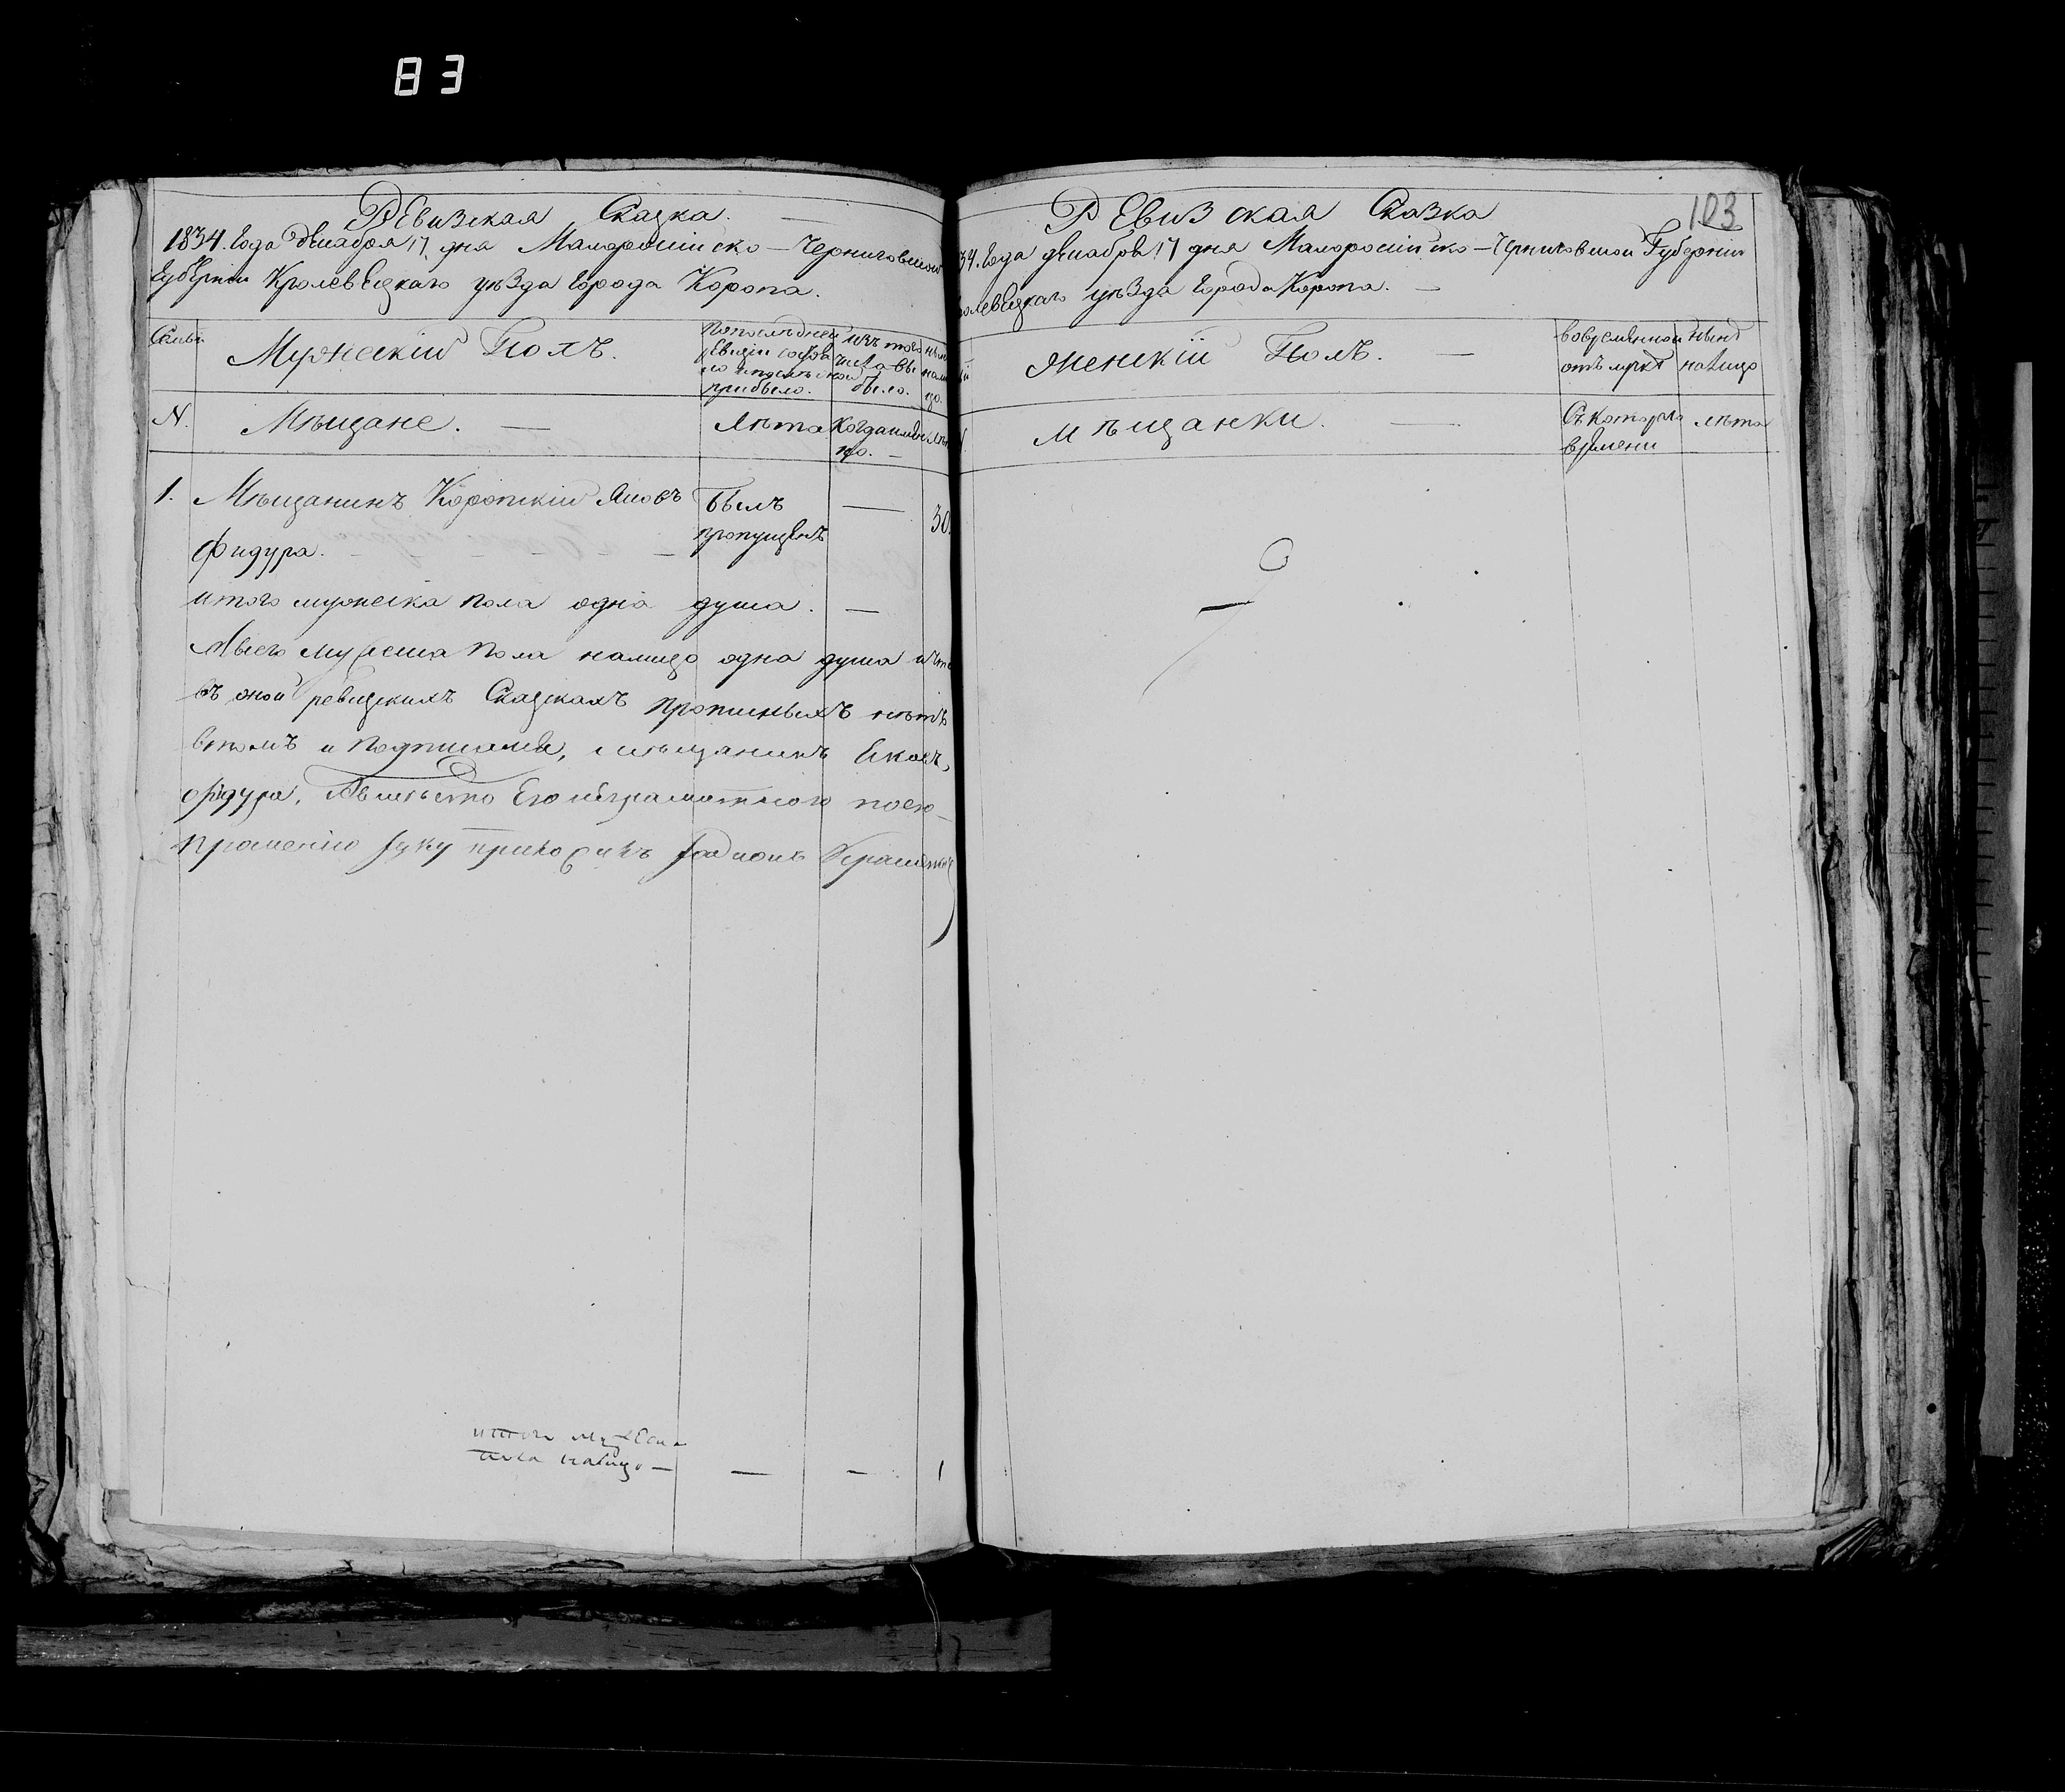 83
Ревизская Сказка.
1834. Года декабря 17 дня Малоросийско-Черниговской
Губернии Кролевецкаго уѣзда города Коропа.
Семьи
Мужеский Полъ.
По последней
ревизии состоя
ло и после оной
прибыло.
изъ того
числа вы
было.
N.
Мѣщане. —
Лѣта
Когда имен
но. —
1. Мѣщанинъ Коропский Яковъ
Фидура.
былъ
пропущенъ
—
30.
итого мужеска пола одна душа. —
Авсего мужеска пола налицо одна душа
въ оной ревизскихъ Сказкахъ прописныхъ нѣтъ
втомъ и подписался, мещанинъ Яковъ,
Фидура, Авместо Его неграмотного поего
прошению руку приложилъ
итого мужеска
пола налицо — — — 1
103
Ревизская Сказка
34. Года декабря 17 дня Малоросийско-Черниговской Губернии
олевецкаго уѣзда Города Коропа. —
Женский Полъ. —
вовременной
отлучке
ныне
налицо
Мѣщанки. —
Съ котораго
времени
лѣта